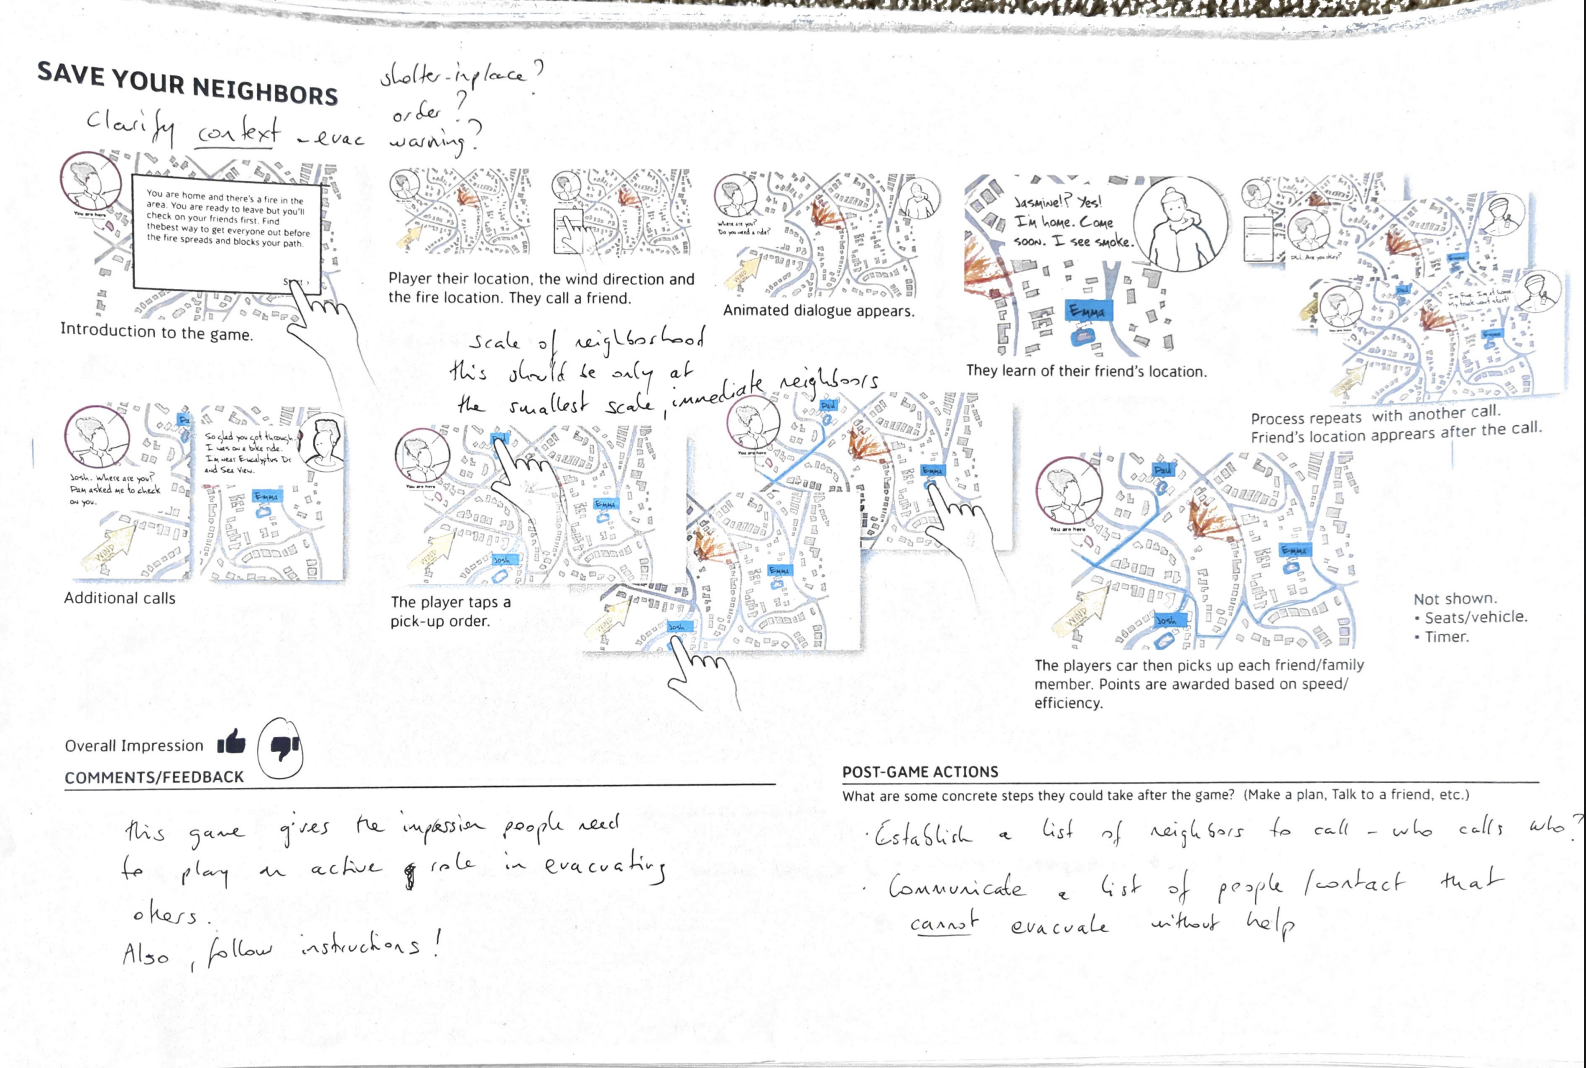 SAVE YOUR NEIGHBORS
shelter-in place?
order?
Clarify context - evac warning?
You are here
You are home and there's a fire in the
area. You are ready to leave but you'll
check on your friends first. Find
thebest way to get everyone out before
the fire spreads and blocks your path.
Introduction to the game.
WIND
Player their location, the wind direction and
the fire location. They call a friend.
Where are you?
Do you need a ride?
WIND
Animated dialogue appears.
Jasmine!? Yes!
I'm home. Come
soon. I see smoke.
Emma
They learn of their friend's location.
Paul
Emma
Emma
WIND
Process repeats with another call.
Friend's location apprears after the call.
scale of neighborhood
this should be only at
the smallest scale, immediate neighbors
Josh. Where are you?
Pam asked me to check
on you.
So glad you got through.
I was on a bike ride.
I'm near Eucalyptus Dr
and Sea View.
Emma
WIND
Additional calls
You are here
Emma
Josh
WIND
The player taps a
pick-up order.
You are here
Paul
Emma
Emma
Josh
WIND
You are here
Paul
Emma
Josh
WIND
The players car then picks up each friend/family
member. Points are awarded based on speed/
efficiency.
Not shown.
• Seats/vehicle.
• Timer.
Overall Impression
COMMENTS/FEEDBACK
this game gives the impression people need
to play an active role in evacuating
others.
Also, follow instructions!
POST-GAME ACTIONS
What are some concrete steps they could take after the game? (Make a plan, Talk to a friend, etc.)
· Establish a list of neighbors to call - who calls who?
· Communicate a list of people/contact that
cannot evacuate without help